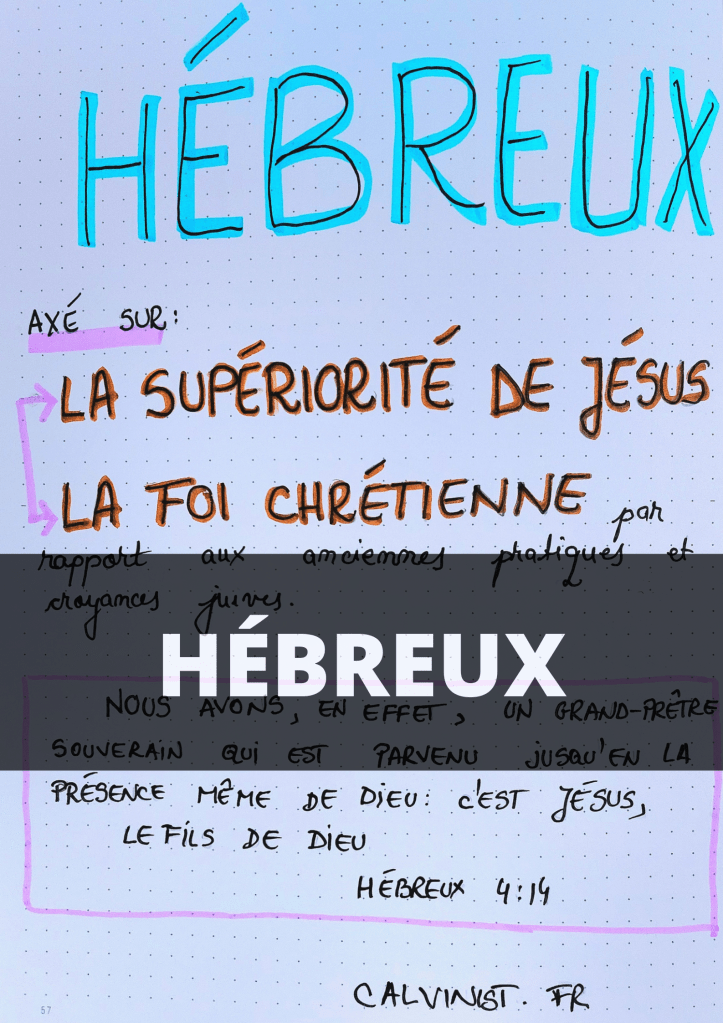 HÉBREUX
AXÉ SUR:
LA SUPÉRIORITÉ DE JÉSUS
LA FOI CHRÉTIENNE par
rapport aux anciennes pratiques et
croyances juives.
HÉBREUX
NOUS AVONS, EN EFFET, UN GRAND-PRÊTRE
SOUVERAIN QUI EST PARVENU JUSQU'EN LA
PRÉSENCE MÊME DE DIEU: C'EST JÉSUS,
LE FILS DE DIEU
HÉBREUX 4:14
CALVINIST.FR
57